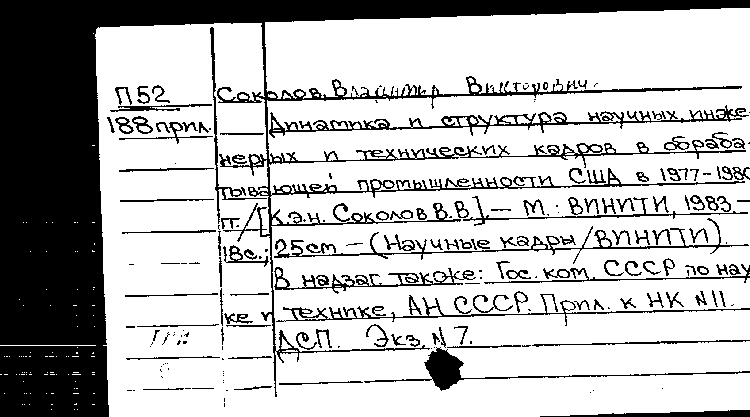 П52 Соколов, Владимир Викторович.
188 прил. Динамика и структура научных, инже-
нерных и технических кадров в обраба-
тывающей промышленности США в 1977-1980
гг. /[К.э.н. Соколов В.В.]. — М.: ВИНИТИ, 1983 –
18с.; 25см – (Научные кадры /ВИНИТИ).
В надзаг. также: Гос. ком. СССР по нау-
ке и технике, АН СССР. Прил. к НК N11.
ДСП. Экз. N 7.